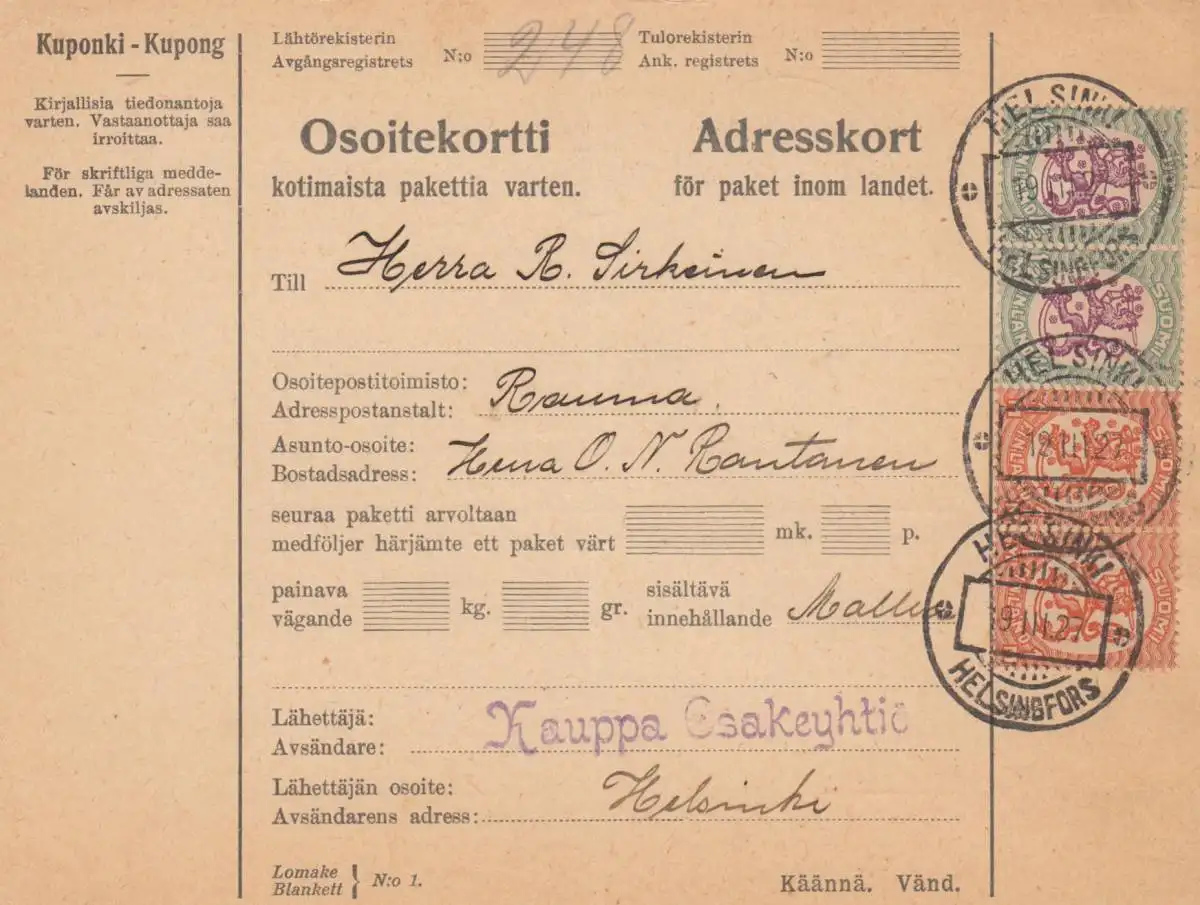 Kuponki - Kupong
Kirjallisia tiedonantoja
varten. Vastaanottaja saa
irroittaa.
För skriftliga medde-
landen. Får av adressaten
avskiljas.
Lähtörekisterin
Avgångsregistrets N:o 248
Tulorekisterin
Ank. registrets N:o
Osoitekortti
kotimaista pakettia varten.
Adresskort
för paket inom landet.
Till Herra R. Sirkeinen
Osoitepostitoimisto:
Adresspostanstalt: Rauma.
Asunto-osoite:
Bostadsadress: Herra O. N. Rantanen
seuraa paketti arvoltaan
medföljer härjämte ett paket värt mk. p.
painava
vägande kg. gr.
sisältävä
innehållande
Lähettäjä:
Avsändare: Kauppa Osakeyhtiö
Lähettäjän osoite:
Avsändarens adress: Helsinki
Lomake
Blankett N:o 1.
Käännä. Vänd.
HELSINKI
19
HELSINGFORS
SUOMI
FINLAND
HELSINKI
19 III.27
SUOMI
FINLAND
HELSINKI
19 III.27
HELSINGFORS
SUOMI